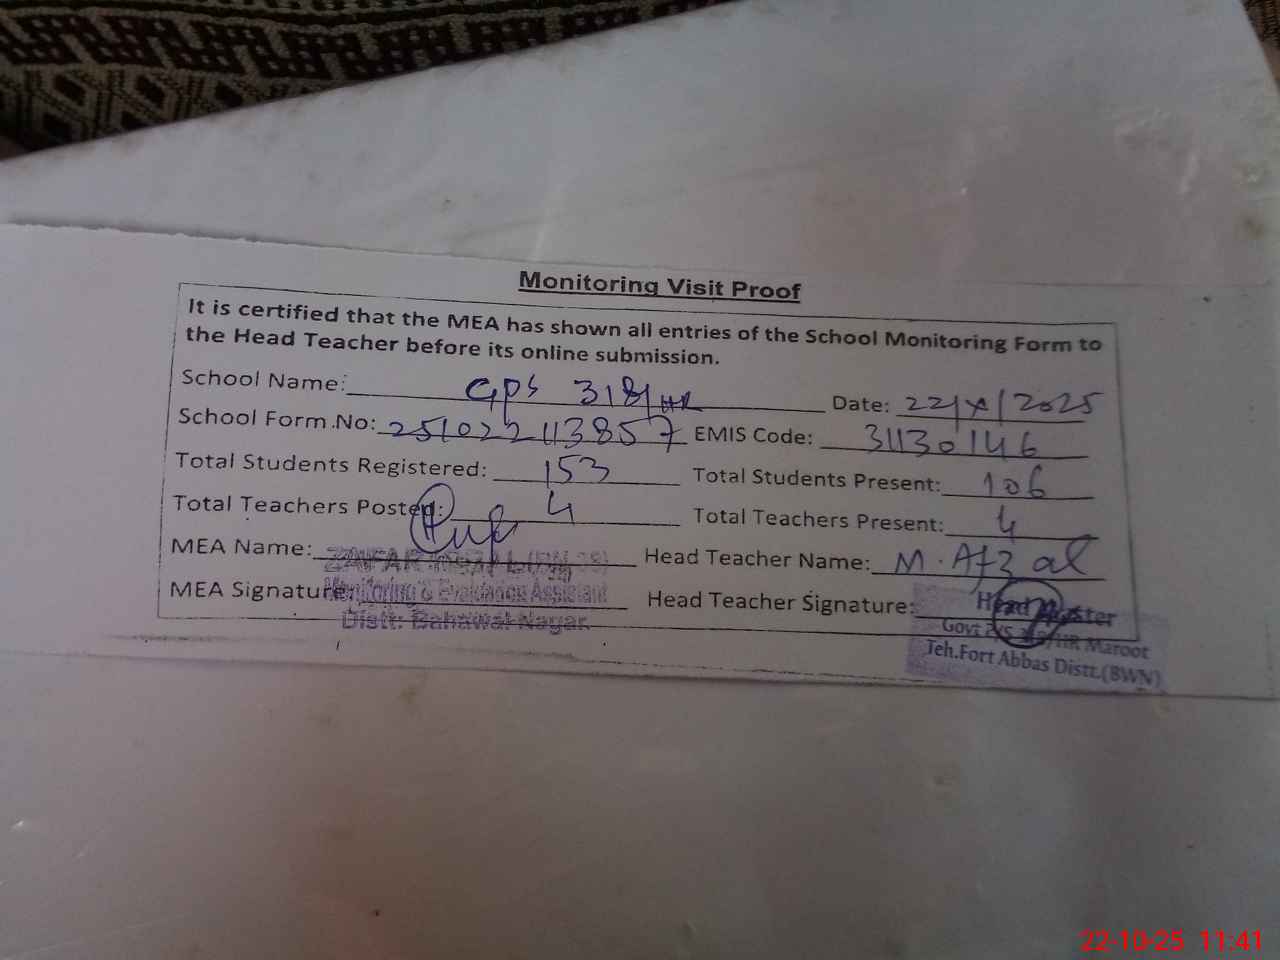 Monitoring Visit Proof
It is certified that the MEA has shown all entries of the School Monitoring Form to
the Head Teacher before its online submission.
School Name: GPS 318/HR Date: 22/X/2025
School Form No: 251022113857 EMIS Code: 31130146
Total Students Registered: 153 Total Students Present: 106
Total Teachers Posted: 4 Total Teachers Present: 4
MEA Name: ZAFAR IQBAL Head Teacher Name: M. Afzal
Monitoring & Evaluation Assistant
MEA Signature: Head Teacher Signature: Head Master
Distt: Bahawal Nagar.
Govt P/S 318/HR Maroot
Teh.Fort Abbas Distt.(BWN)
22-10-25 11:41